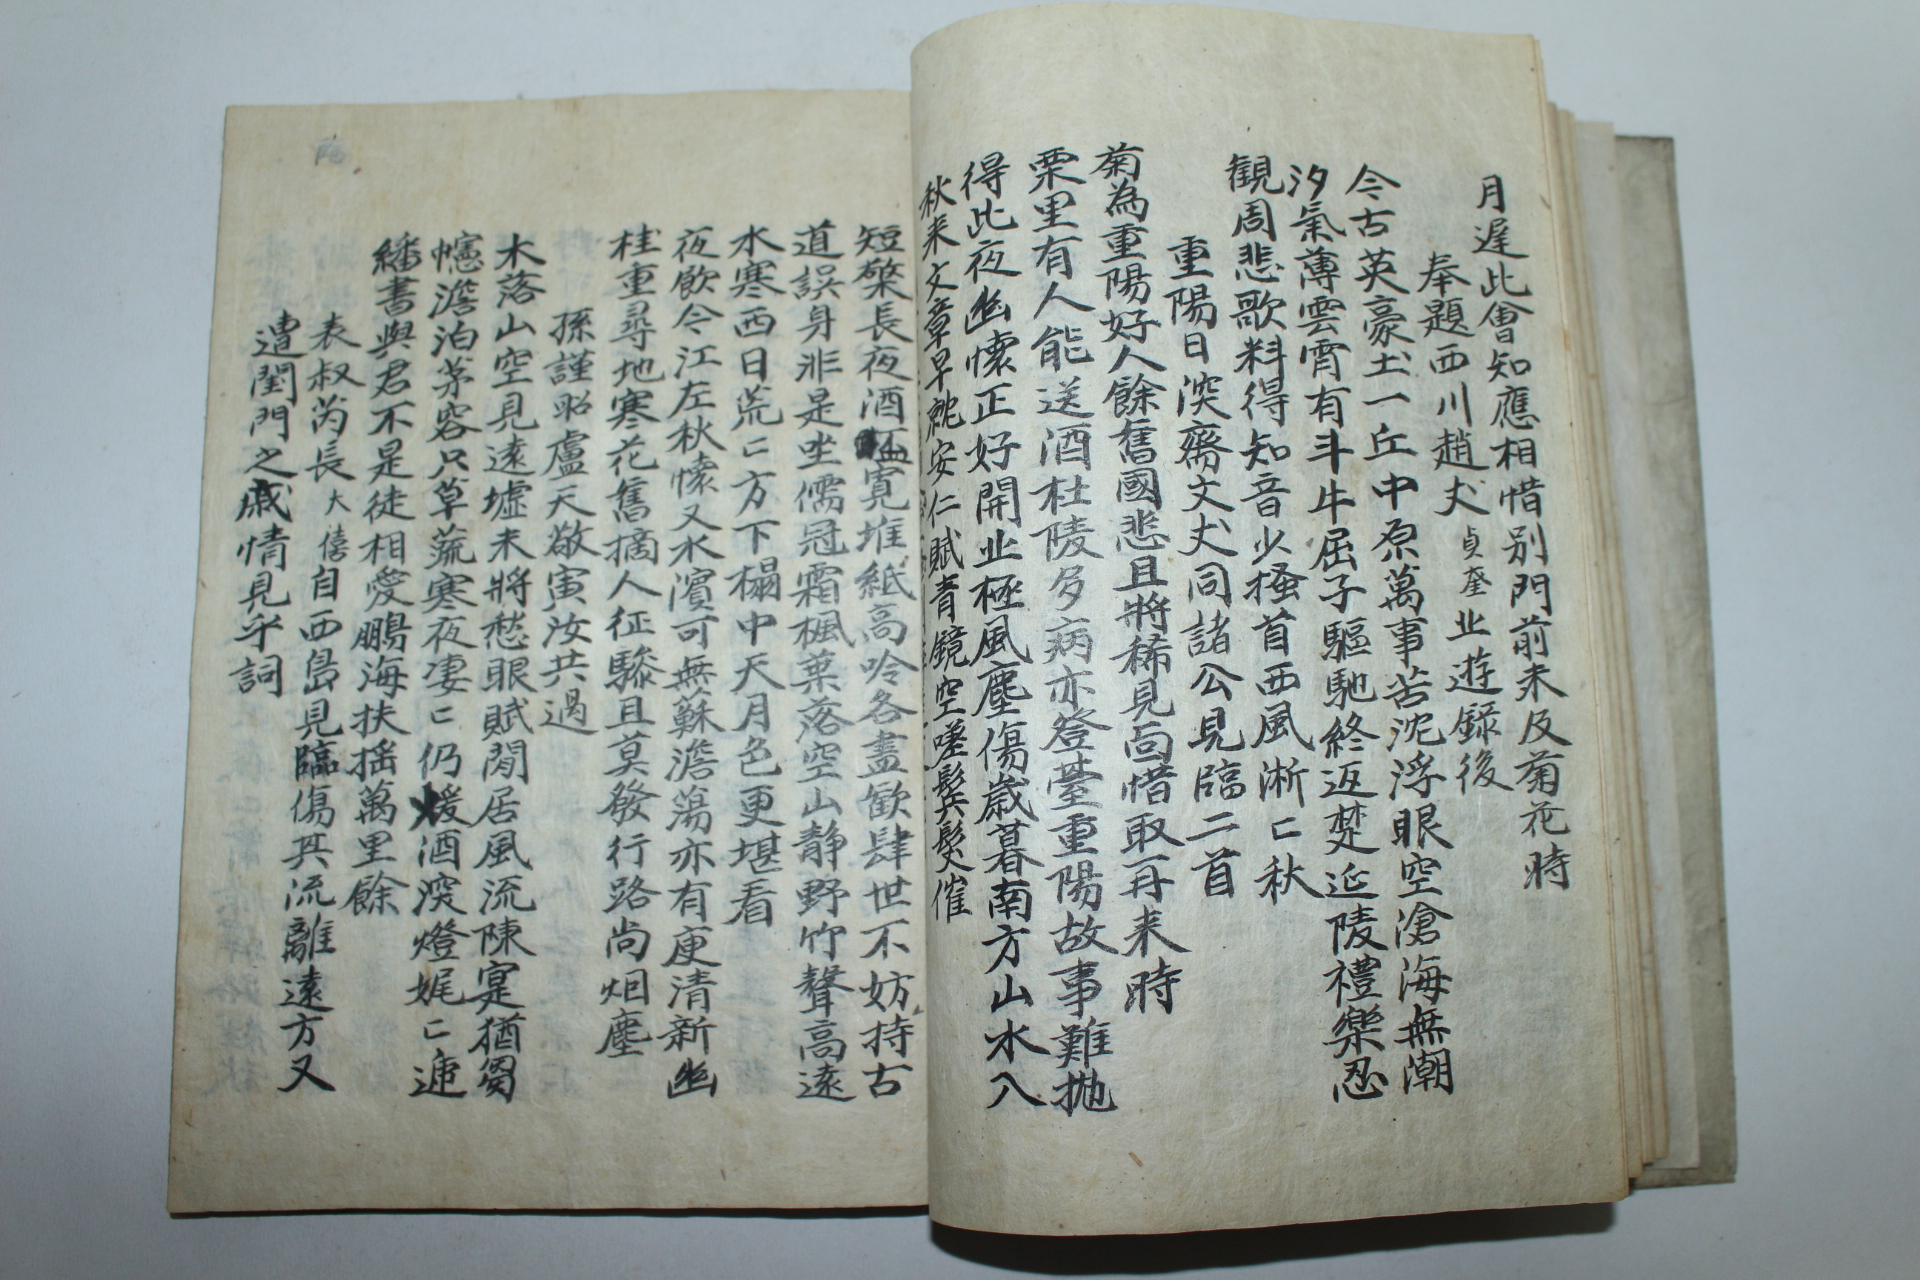 月遲此會知應相惜別門前未及菊花時
奉題西川趙丈貞奎北遊錄後
今古英豪土一丘中原萬事苦沈浮眼空滄海無潮
汐氣薄雲霄有斗牛屈子驅馳終返楚延陵禮樂忍
觀周悲歌料得知音少搔首西風淅〻秋
重陽日深齋文丈同諸公見臨二首
菊為重陽好人餘舊國悲且將稀見面惜取再来時
栗里有人能送酒杜陵多病亦登䑓重陽故事難拋
得此夜幽懷正好開北極風塵傷歲暮南方山水入
秋来文章早就安仁賦青鏡空嗟鬂髮催
短檠長夜酒盃寛堆紙高吟各盡歡肆世不妨持古
道誤身非是坐儒冠霜楓葉落空山静野竹聲高遠
水寒西日荒〻方下榻中天月色更堪看
夜飲今江左秋懷又水濱可無蘇澹蕩亦有庾清新幽
桂重尋地寒花舊摘人征驂且莫發行路尚烟塵
孫謹昭盧天敬寅汝共過
木落山空見遠墟未將愁眼賦閒居風流陳寔猶芻
幰澹泊茅容只草蔬寒夜凄〻仍煖酒深燈娓〻遞
繙書與君不是徒相愛鵬海扶搖萬里餘
表叔芮長大僖自西島見臨傷其流離遠方又
遭閨門之戚情見乎詞